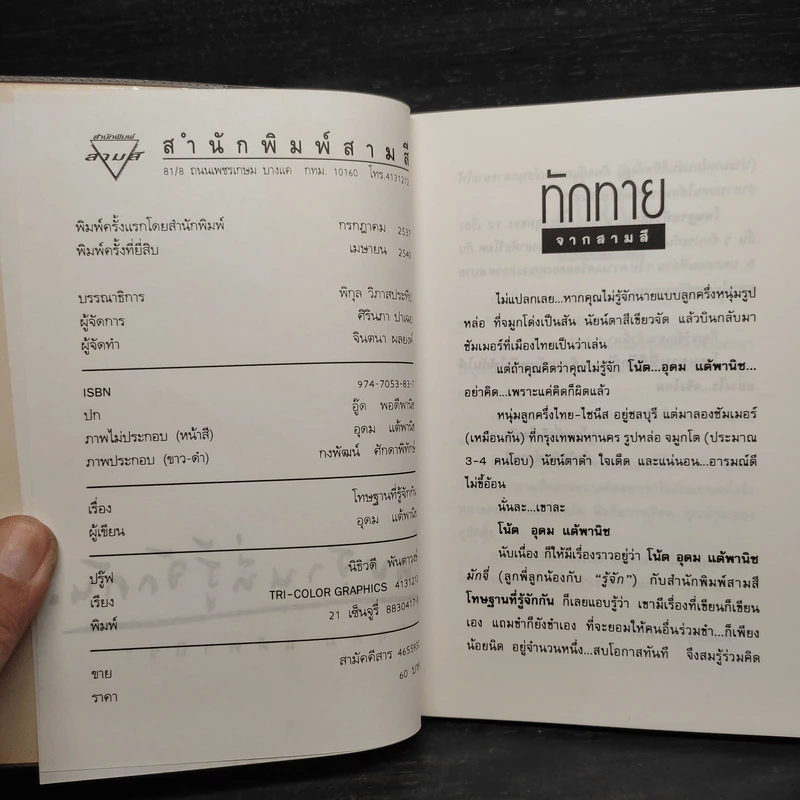 สำนักพิมพ์
สามสี
สำนักพิมพ์สามสี
81/8 ถนนเพชรเกษม บางแค กทม. 10160 โทร.4131212
พิมพ์ครั้งแรกโดยสำนักพิมพ์ กรกฎาคม 2537
พิมพ์ครั้งที่ยี่สิบ เมษายน 2540
บรรณาธิการ พิกุล วิภาสประทีป
ผู้จัดการ ศิรินภา
ผู้จัดทำ จินตนา ผลยงค์
ISBN 974-7053-83-7
ปก อู๊ด พอดีพานิช
ภาพไม่ประกอบ (หน้าสี) อุดม แต้พานิช
ภาพประกอบ (ขาว-ดำ) กงพัฒน์ ศักดาพิทักษ์
เรื่อง โทษฐานที่รู้จักกัน
ผู้เขียน อุดม แต้พานิช
ปรู๊ฟ นิธิวดี
เรียง TRI-COLOR GRAPHICS 4131212
พิมพ์ 21 เซ็นจูรี่
ขาย สามัคคีสาร
ราคา 60 บาท
ทักทาย
จากสามสี
ไม่แปลกเลย...หากคุณไม่รู้จักนายแบบลูกครึ่งหนุ่มรูป
หล่อ ที่จมูกโด่งเป็นสัน นัยน์ตาสีเขียวจัด แล้วบินกลับมา
ซัมเมอร์ที่เมืองไทยเป็นว่าเล่น
แต่ถ้าคุณคิดว่าคุณไม่รู้จัก โน้ต...อุดม แต้พานิช...
อย่าคิด...เพราะแค่คิดก็ผิดแล้ว
หนุ่มลูกครึ่งไทย-ไชนีส อยู่ชลบุรี แต่มาลองซัมเมอร์
(เหมือนกัน) ที่กรุงเทพมหานคร รูปหล่อ จมูกโต (ประมาณ
3-4 คนโอบ) นัยน์ตาดำ ใจเด็ด และแน่นอน...อารมณ์ดี
ไม่ขี้อ้อน
นั่นละ...เขาละ
โน้ต อุดม แต้พานิช
นับเนื่อง ก็ให้มีเรื่องราวอยู่ว่า โน้ต อุดม แต้พานิช
มักจี่ (ลูกพี่ลูกน้องกับ “รู้จัก”) กับสำนักพิมพ์สามสี
โทษฐานที่รู้จักกัน ก็เลยแอบรู้ว่า เขามีเรื่องที่เขียนก็เขียน
เอง แถมขำก็ยังขำเอง ที่จะยอมให้คนอื่นร่วมขำ...ก็เพียง
น้อยนิด อยู่จำนวนหนึ่ง...สบโอกาสทันที จึงสมรู้ร่วมคิด